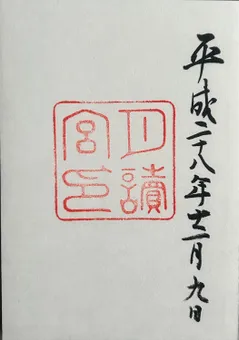 平成二十八年十一月九日
月讀
宮印